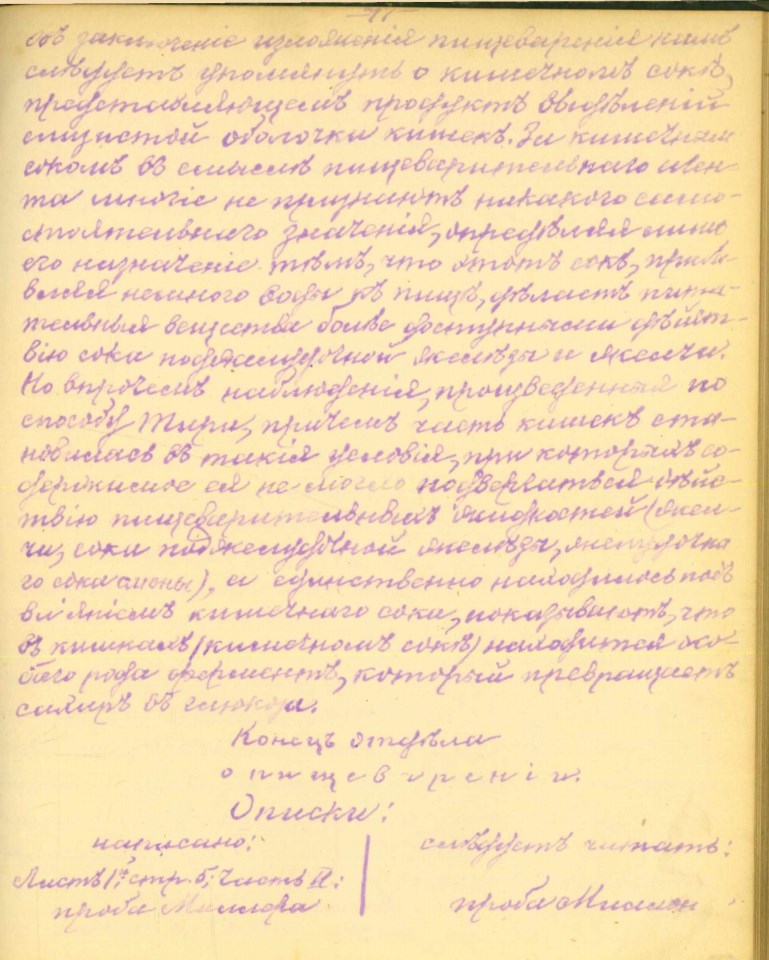 въ заключеніе изложенія пищеваренія намъ
слѣдуетъ упомянуть о кишечномъ сокѣ,
представляющемъ продуктъ выдѣленій
слизистой оболочки кишекъ. За кишечнымъ
сокомъ въ смыслѣ пищеварительнаго аген-
та многіе не признаютъ никакого само-
стоятельнаго значенія, опредѣляя лишь
его назначеніе тѣмъ, что этотъ сокъ, прибав-
вляя немного воды къ пищѣ, дѣлаетъ пита-
тельныя вещества болѣе доступными дѣйст-
вію сока поджелудочной железы и желчи.
Но впрочемъ наблюденія, произведенныя по
способу Тири, причемъ часть кишекъ ста-
новилась въ такія условія, при которыхъ со-
держимое ея не могло подвергаться дѣйс-
твію пищеварительныхъ жидкостей (жел-
чи, сока поджелудочной железы, желудочна
го сока слюны), а единственно находилось подъ
вліяніемъ кишечнаго сока, показываютъ, что
въ кишкахъ (кишечномъ сокѣ) находится осо-
баго рода ферментъ, который превращаетъ
сахаръ въ глюкозу.
Конецъ отдѣла
о пищевареніи.
Описки:
написано:
слѣдуетъ читать:
Листъ 1й; стр. 5; часть II:
проба Миллера
проба